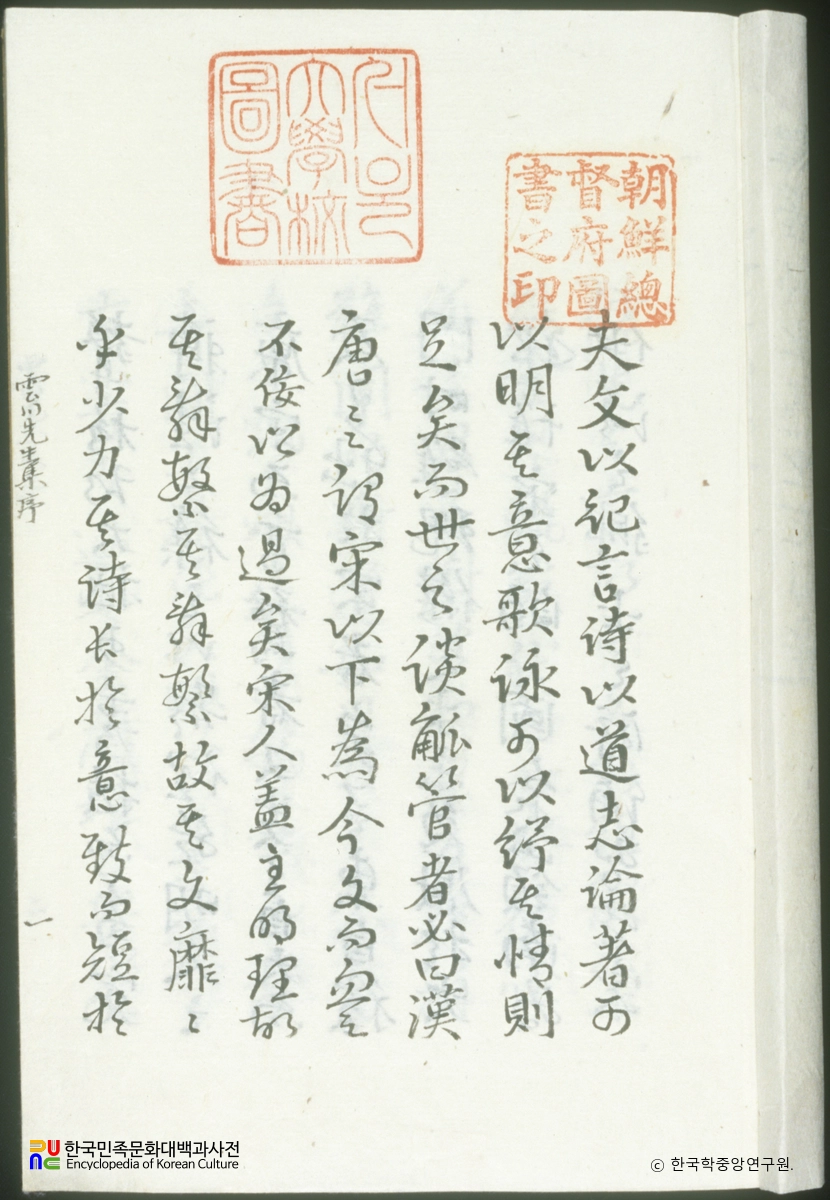 서울
大學校
圖書
朝鮮總
督府圖
書之印
夫文以記言詩以道志論著可
以明其意歌詠可以紓其情則
足矣而世之談觚管者必曰漢
唐〻謂宋以下為今文而忽之
不佞以為過矣宋人蓋主明理故
其辭繁其辭繁故其文靡〻
乎少力其詩長於意致而短於
雲川先生稾序
一
한국민족문화대백과사전
Encyclopedia of Korean Culture
© 한국학중앙연구원.